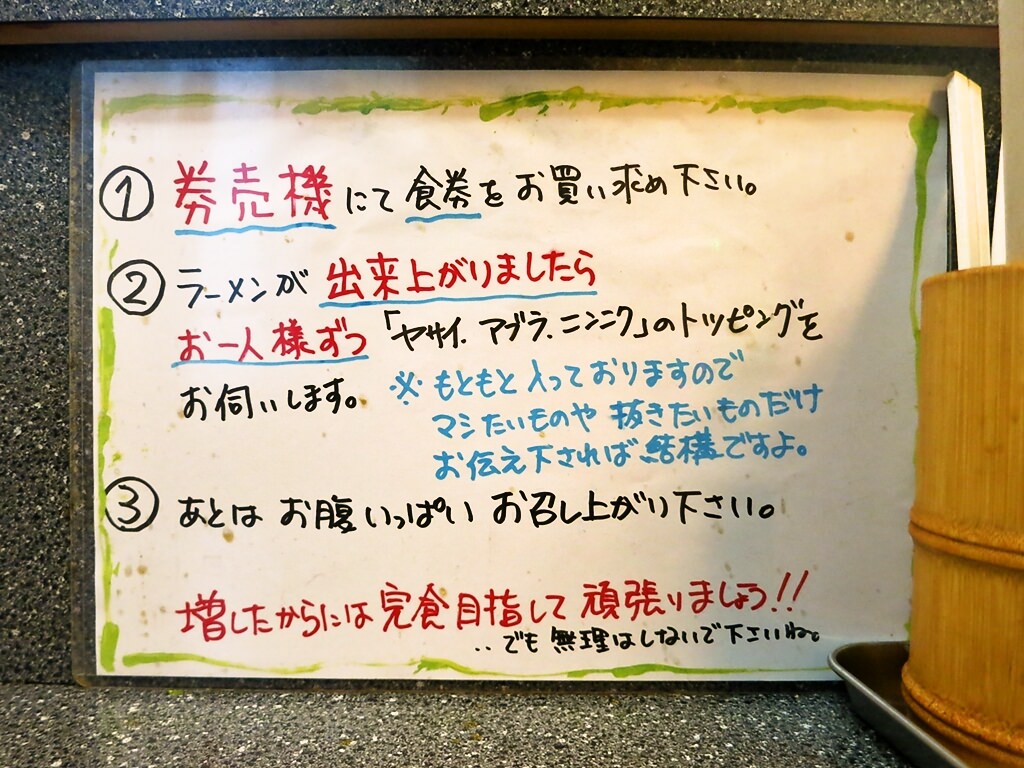 ① 券売機にて食券をお買い求め下さい。
② ラーメンが出来上がりましたら
お一人様ずつ「ヤサイ.アブラ.ニンニク」のトッピングを
お伺いします。 ※もともと入っておりますので
マシたいものや抜きたいものだけ
お伝え下されば結構ですよ。
③ あとはお腹いっぱいお召し上がり下さい。
増したからには完食目指して頑張りましょう!!
‥でも無理はしないで下さいね。